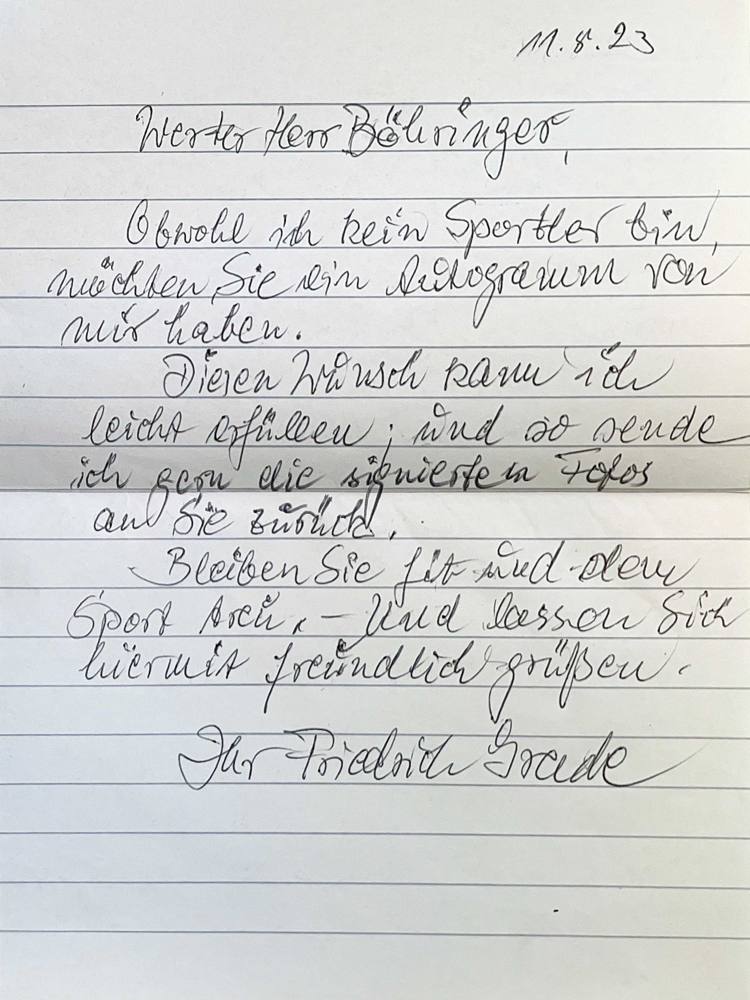 11.8.23
Werter Herr Böhringer,
Obwohl ich kein Sportler bin,
möchten Sie ein Autogramm von
mir haben.
Diesen Wunsch kann ich
leicht erfüllen; und so sende
ich gern die signierten Fotos
an Sie zurück.
Bleiben Sie fit und dem
Sport treu. – Und lassen Sich
hiermit freundlich grüßen.
Ihr Friedrich Grade